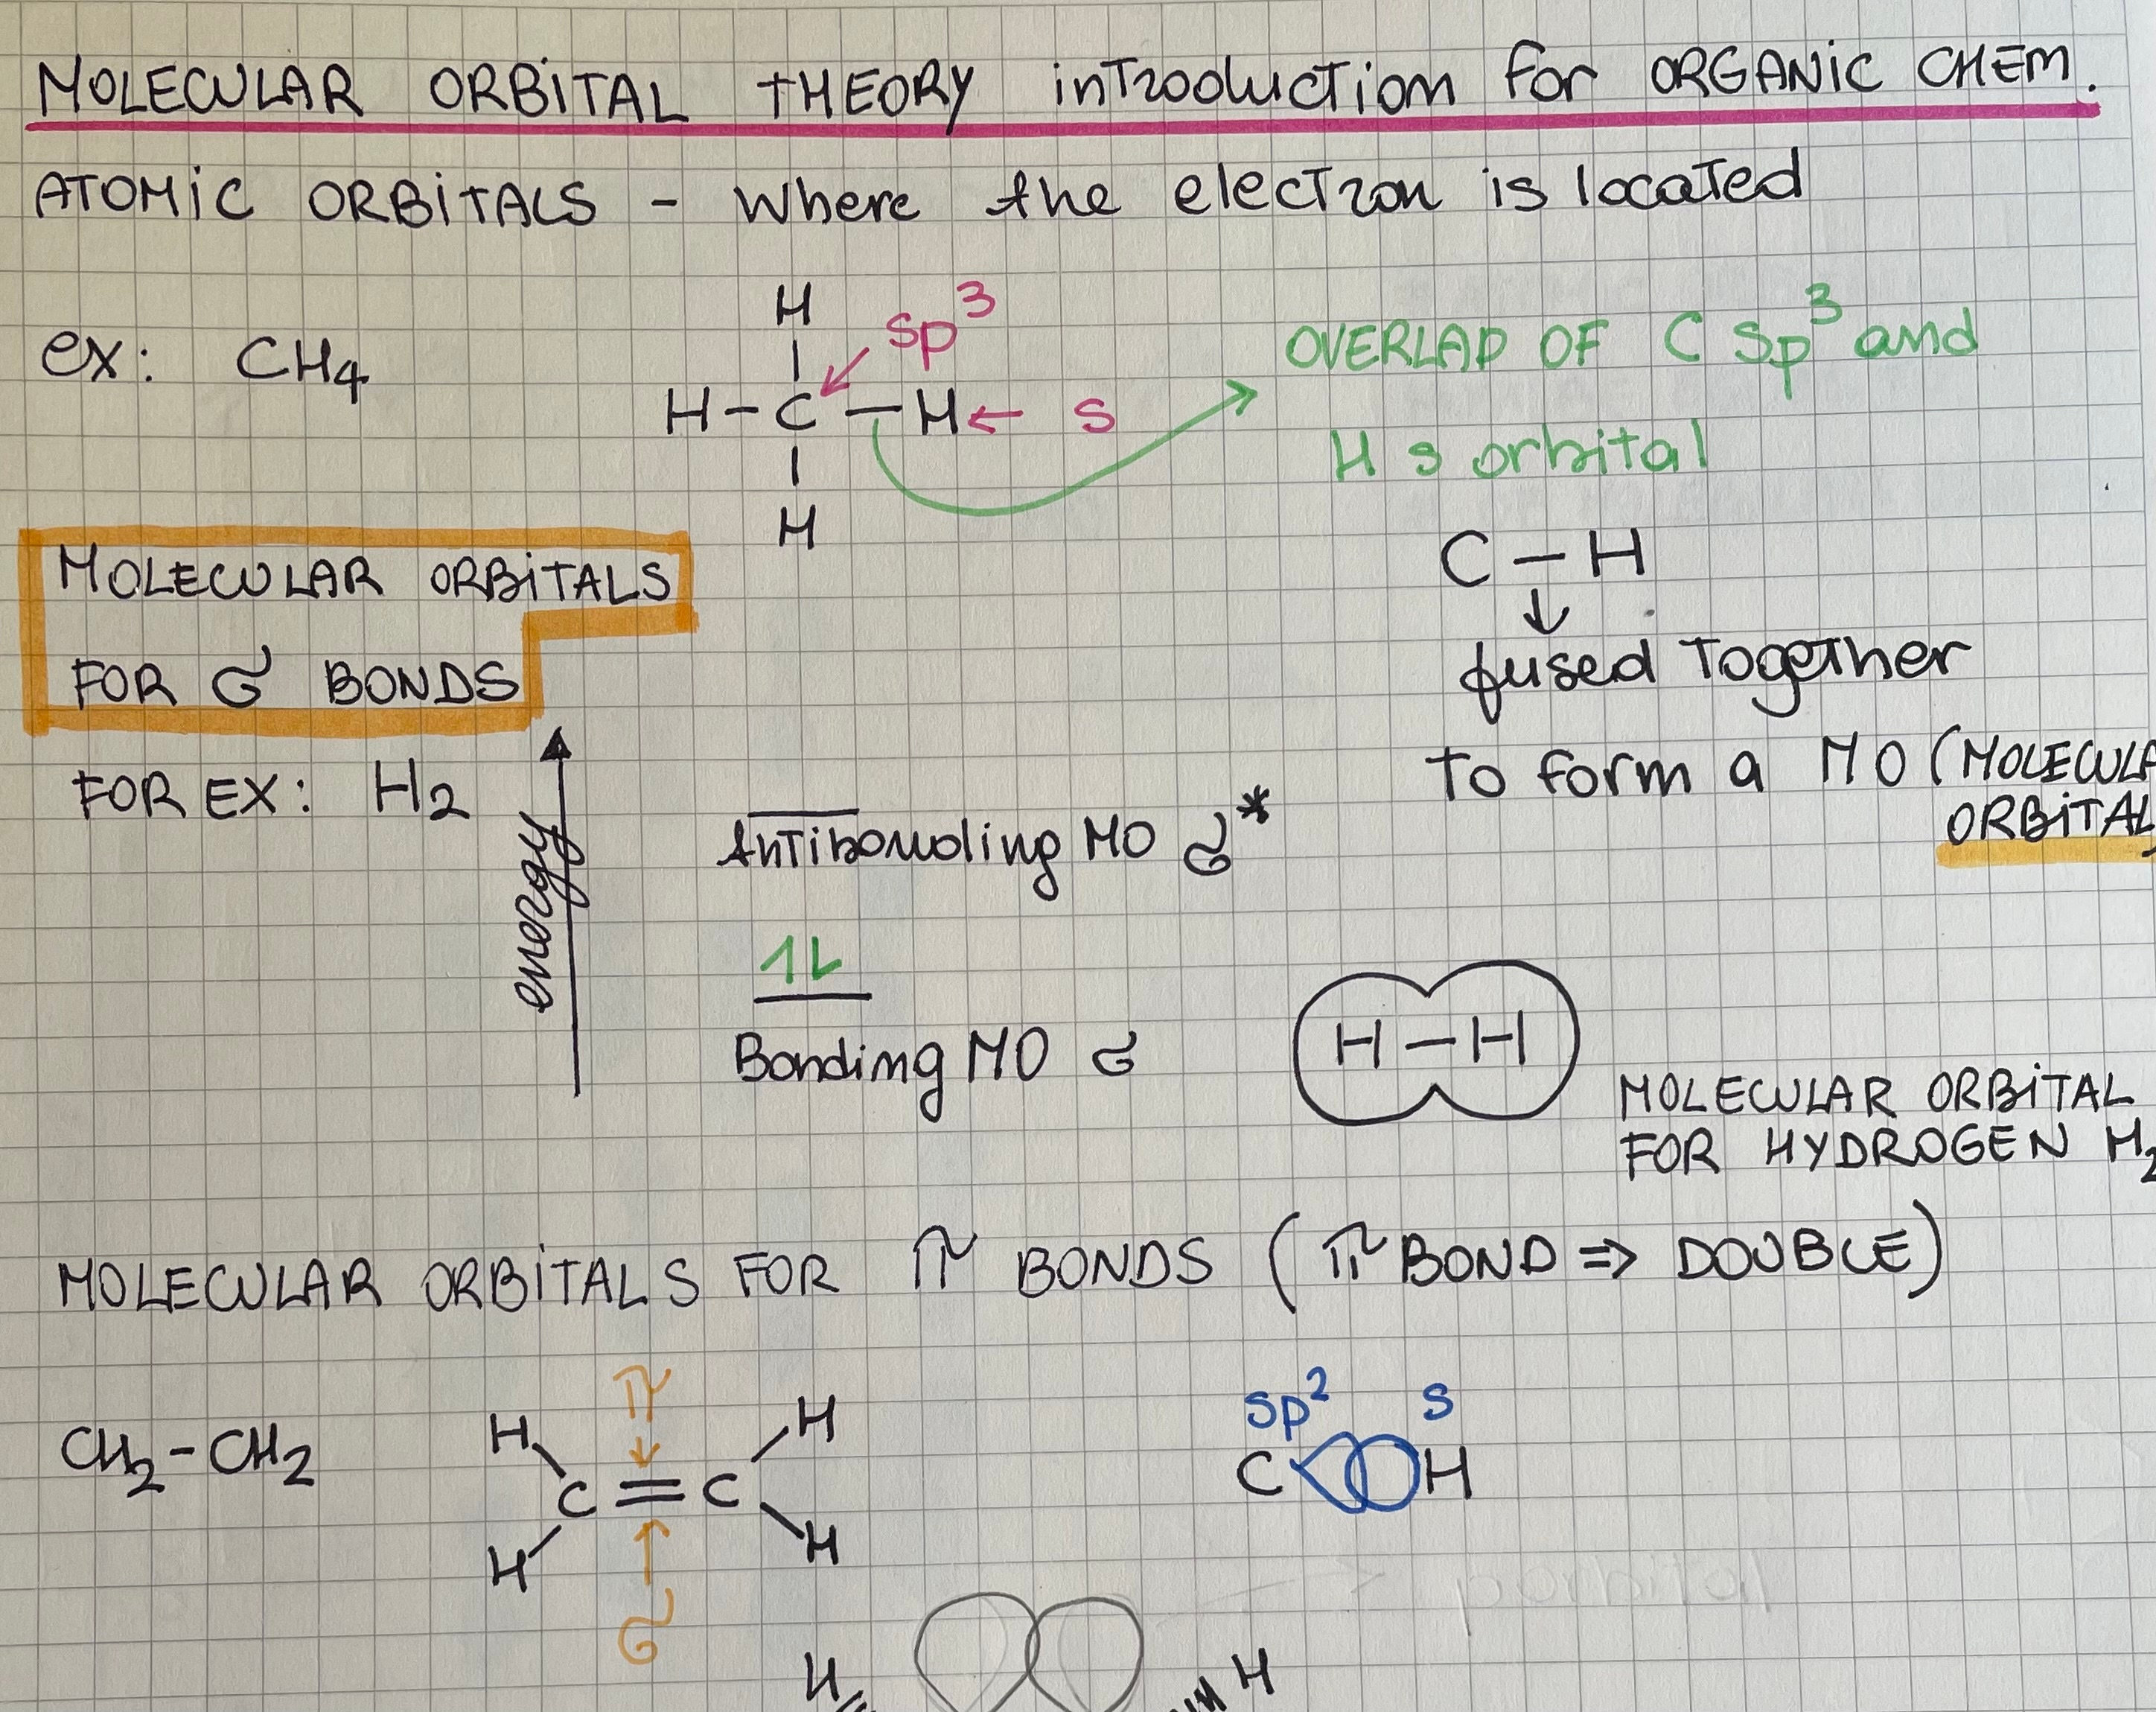 MOLECULAR ORBITAL THEORY introduction for ORGANIC CHEM.
ATOMIC ORBITALS - Where the electron is located
ex: CH4
H
sp³
H-C-H ← s
H
OVERLAP OF C sp³ and
H s orbital
C-H
↓
fused together
to form a MO (MOLECULA
ORBITAL
MOLECULAR ORBITALS
FOR σ BONDS
FOR EX: H2
energy
Antibonding MO σ*
1L
Bonding MO σ
H-H
MOLECULAR ORBITAL
FOR HYDROGEN H2
MOLECULAR ORBITALS FOR π BONDS (π BOND => DOUBLE)
CH2-CH2
π
H H
C=C
H H
σ
sp² s
C H
H H